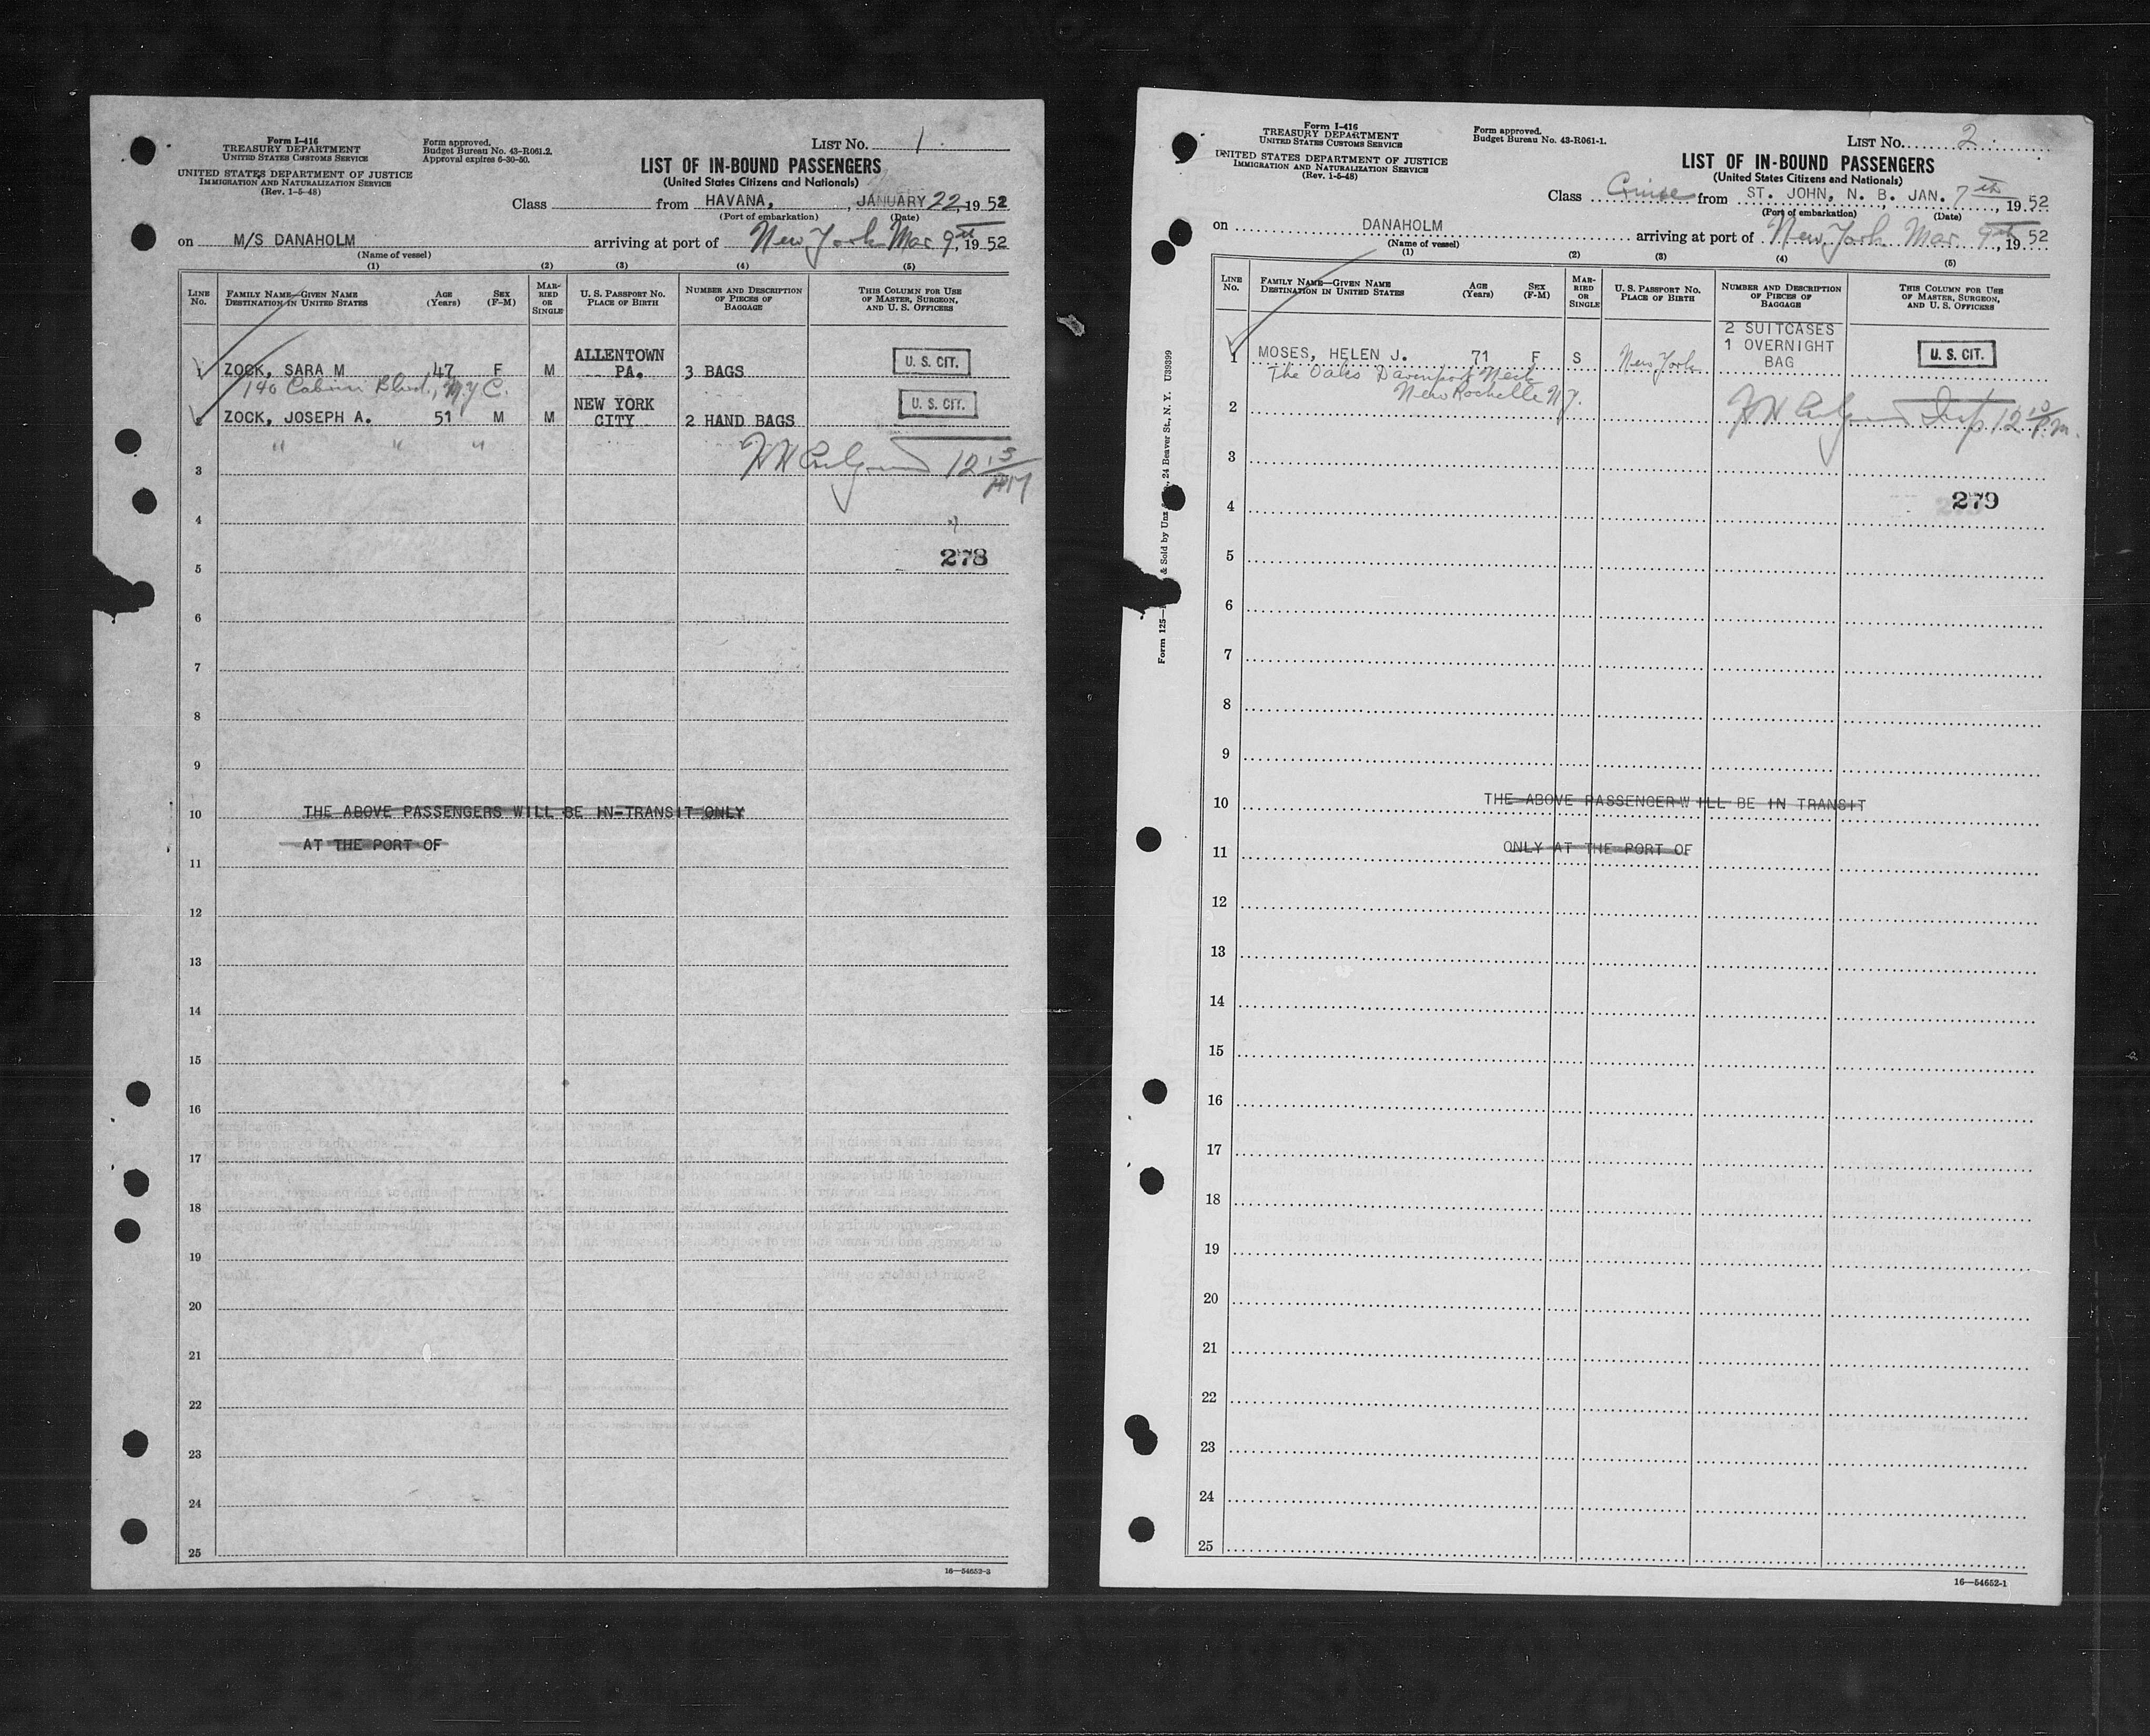 Form I-416
TREASURY DEPARTMENT
UNITED STATES CUSTOMS SERVICE
UNITED STATES DEPARTMENT OF JUSTICE
IMMIGRATION AND NATURALIZATION SERVICE
(Rev. 1-5-48)
Form approved.
Budget Bureau No. 43-R061.2.
Approval expires 6-30-50.
LIST No. 1
LIST OF IN-BOUND PASSENGERS
(United States Citizens and Nationals)
Class from HAVANA, , JANUARY 22, 1952
(Port of embarkation) (Date)
on M/S DANAHOLM arriving at port of New York Mar 9th, 1952
(Name of vessel)
(1) (2) (3) (4) (5)
LINE No. FAMILY NAME—GIVEN NAME DESTINATION IN UNITED STATES AGE (Years) SEX (F-M) MARRIED OR SINGLE U. S. PASSPORT No. PLACE OF BIRTH NUMBER AND DESCRIPTION OF PIECES OF BAGGAGE THIS COLUMN FOR USE OF MASTER, SURGEON, AND U. S. OFFICERS
1 ZOCK, SARA M 47 F M ALLENTOWN PA. 3 BAGS U. S. CIT.
140 Cabrini Blvd., N.Y.C.
2 ZOCK, JOSEPH A. 51 M M NEW YORK CITY 2 HAND BAGS U. S. CIT.
" " "
12 15
3
4
278
5
6
7
8
9
10 THE ABOVE PASSENGERS WILL BE IN-TRANSIT ONLY
AT THE PORT OF
11
12
13
14
15
16
17
18
19
20
21
22
23
24
25
16—54652-3
Form I-416
TREASURY DEPARTMENT
UNITED STATES CUSTOMS SERVICE
UNITED STATES DEPARTMENT OF JUSTICE
IMMIGRATION AND NATURALIZATION SERVICE
(Rev. 1-5-48)
Form approved.
Budget Bureau No. 43-R061-1.
LIST No. 2
LIST OF IN-BOUND PASSENGERS
(United States Citizens and Nationals)
Class Cruise from ST. JOHN, N. B. JAN. 7th, 1952
(Port of embarkation) (Date)
on DANAHOLM arriving at port of New York Mar. 9th, 1952
(Name of vessel)
(1) (2) (3) (4) (5)
LINE No. FAMILY NAME—GIVEN NAME DESTINATION IN UNITED STATES AGE (Years) SEX (F-M) MARRIED OR SINGLE U. S. PASSPORT No. PLACE OF BIRTH NUMBER AND DESCRIPTION OF PIECES OF BAGGAGE THIS COLUMN FOR USE OF MASTER, SURGEON, AND U. S. OFFICERS
1 MOSES, HELEN J. 71 F S New York 2 SUITCASES 1 OVERNIGHT BAG U. S. CIT.
The Oaks Davenport Neck
New Rochelle N.Y.
2 Insp 12 15 P.M.
3
4 279
5
6
7
8
9
10 THE ABOVE PASSENGER WILL BE IN TRANSIT
11 ONLY AT THE PORT OF
12
13
14
15
16
17
18
19
20
21
22
23
24
25
16—54652-1
Form 125— & Sold by Unz , 24 Beaver St., N. Y. U39399